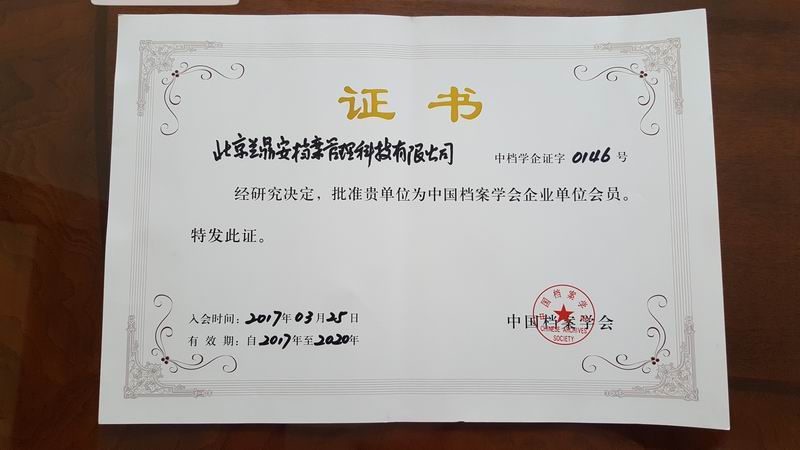 证书
北京兰鼎安档案管理科技有限公司 中档学企证字 0146 号
经研究决定，批准贵单位为中国档案学会企业单位会员。
特发此证。
入会时间：2017年03月25日
有效期：自2017年至2020年
中国档案学会
中国档案学会
CHINESE ARCHIVES
SOCIETY